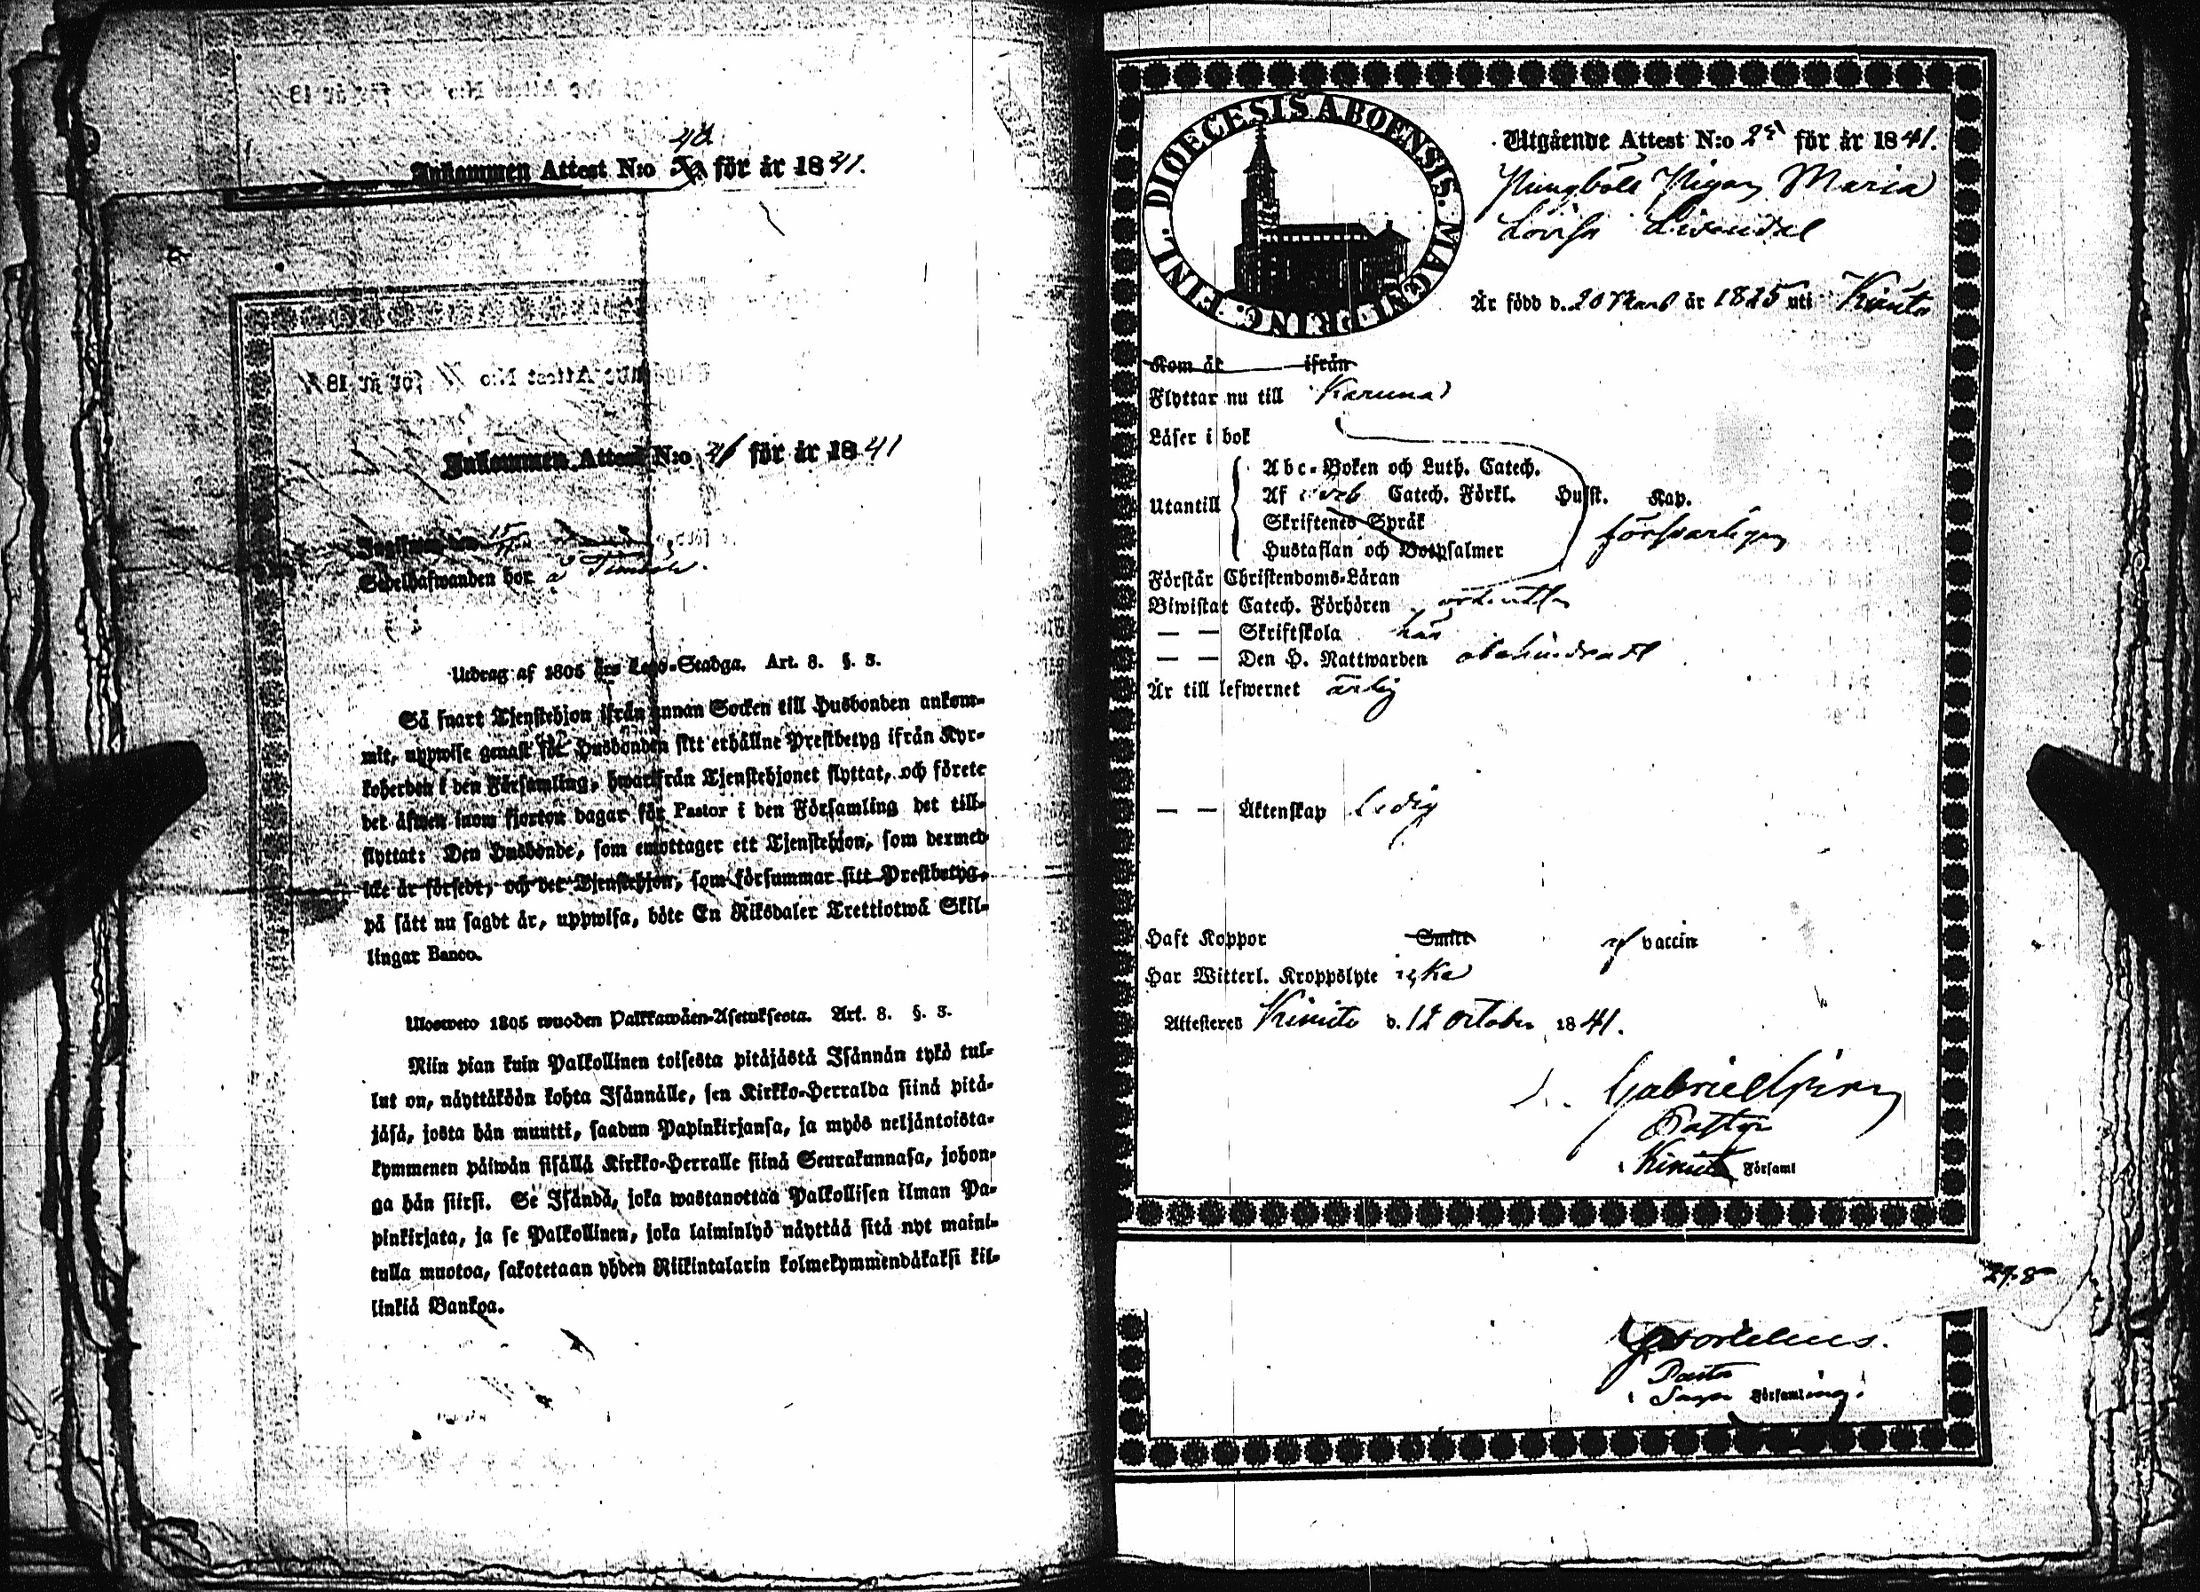 40
Inkommen Attest N:o för år 1841.
Inkommen Attest N:o 41 för år 1841
Sedelhafwanden bor å
Utdrag af 1805 års Lego-Stadga. Art. 8. §. 3.
Så snart Tjenstehjon ifrån annan Socken till Husbonden ankom-
mit, uppwise genast för Husbonden sitt erhållne Prestbetyg ifrån Kyr-
koherden i den Församling, hwarifrån Tjenstehjonet flyttat, och förete
det äfwen inom fjorton dagar för Pastor i den Församling det till-
flyttat: Den Husbonde, som emottager ett Tjenstehjon, som dermed
icke är försedt, och det Tjenstehjon, som försummar sitt Prestbetyg,
på sätt nu sagdt är, uppwisa, böte En Riksdaler Trettiotwå Skil-
lingar Banco.
Ulosweto 1805 wuoden Palkkawäen-Asetuksesta. Art. 8. §. 3.
Niin pian kuin Palkollinen toisesta pitäjästä Isännän tykö tul-
lut on, näyttäköön kohta Isännälle, sen Kirkko-Herralda siinä pitä-
jäsä, josta hän muutti, saadun Papinkirjansa, ja myös neljäntoista-
kymmenen päiwän sisällä Kirkko-Herralle siinä Seurakunnasa, johon-
ga hän siirsi. Se Isändä, joka wastanottaa Palkollisen ilman Pa-
pinkirjata, ja se Palkollinen, joka laiminlyö näyttää sitä nyt maini-
tulla muotoa, sakotetaan yhden Riikintalarin kolmekymmendäkaksi kil-
linkiä Bankoa.
DIOECESIS ABOENSIS. MAGNI PRINC. FINL.
Utgående Attest N:o för år 1841.
Pigan Maria
Lovisa
Är född d. 20 Mars år 1825 uti Kimito
Kom år ifrån
Flyttar nu till Karuna
Läser i bok
Utantill
Abc-Boken och Luth. Catech.
Af Sveb Catech. Förkl. Hufst. Kap.
Skriftenes Språk
försvarligen
Hustaflan och Botpsalmer
Förstår Christendoms-Läran
Biwistat Catech. Förhören ordentl.
— — Skriftskola här
— — Den H. Nattwarden obehindradt
Är till lefwernet ärlig
— — Äktenskap Ledig
Haft Koppor Smitt af vaccin
Har Witterl. Kroppslyte icke
Attesteres Kimito d. 12 October 1841.
Gabriel
Pastor
i Kimito Församl
Pastor
i Församling.